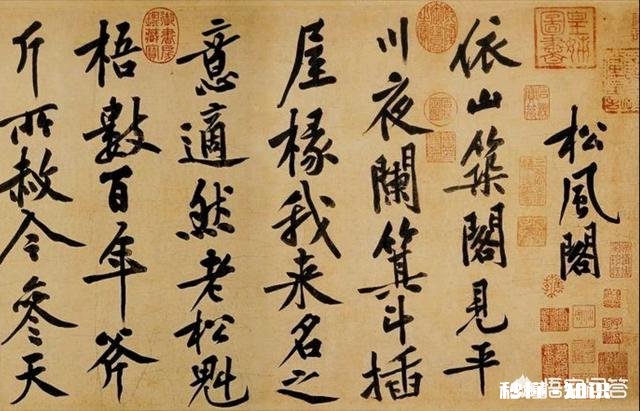 松風閣
依山築閣見平
川夜闌箕斗插
屋椽我来名之
意適然老松魁
梧數百年斧
斤所赦今參天
皇姊圖書
秒懂知识
悟空问答